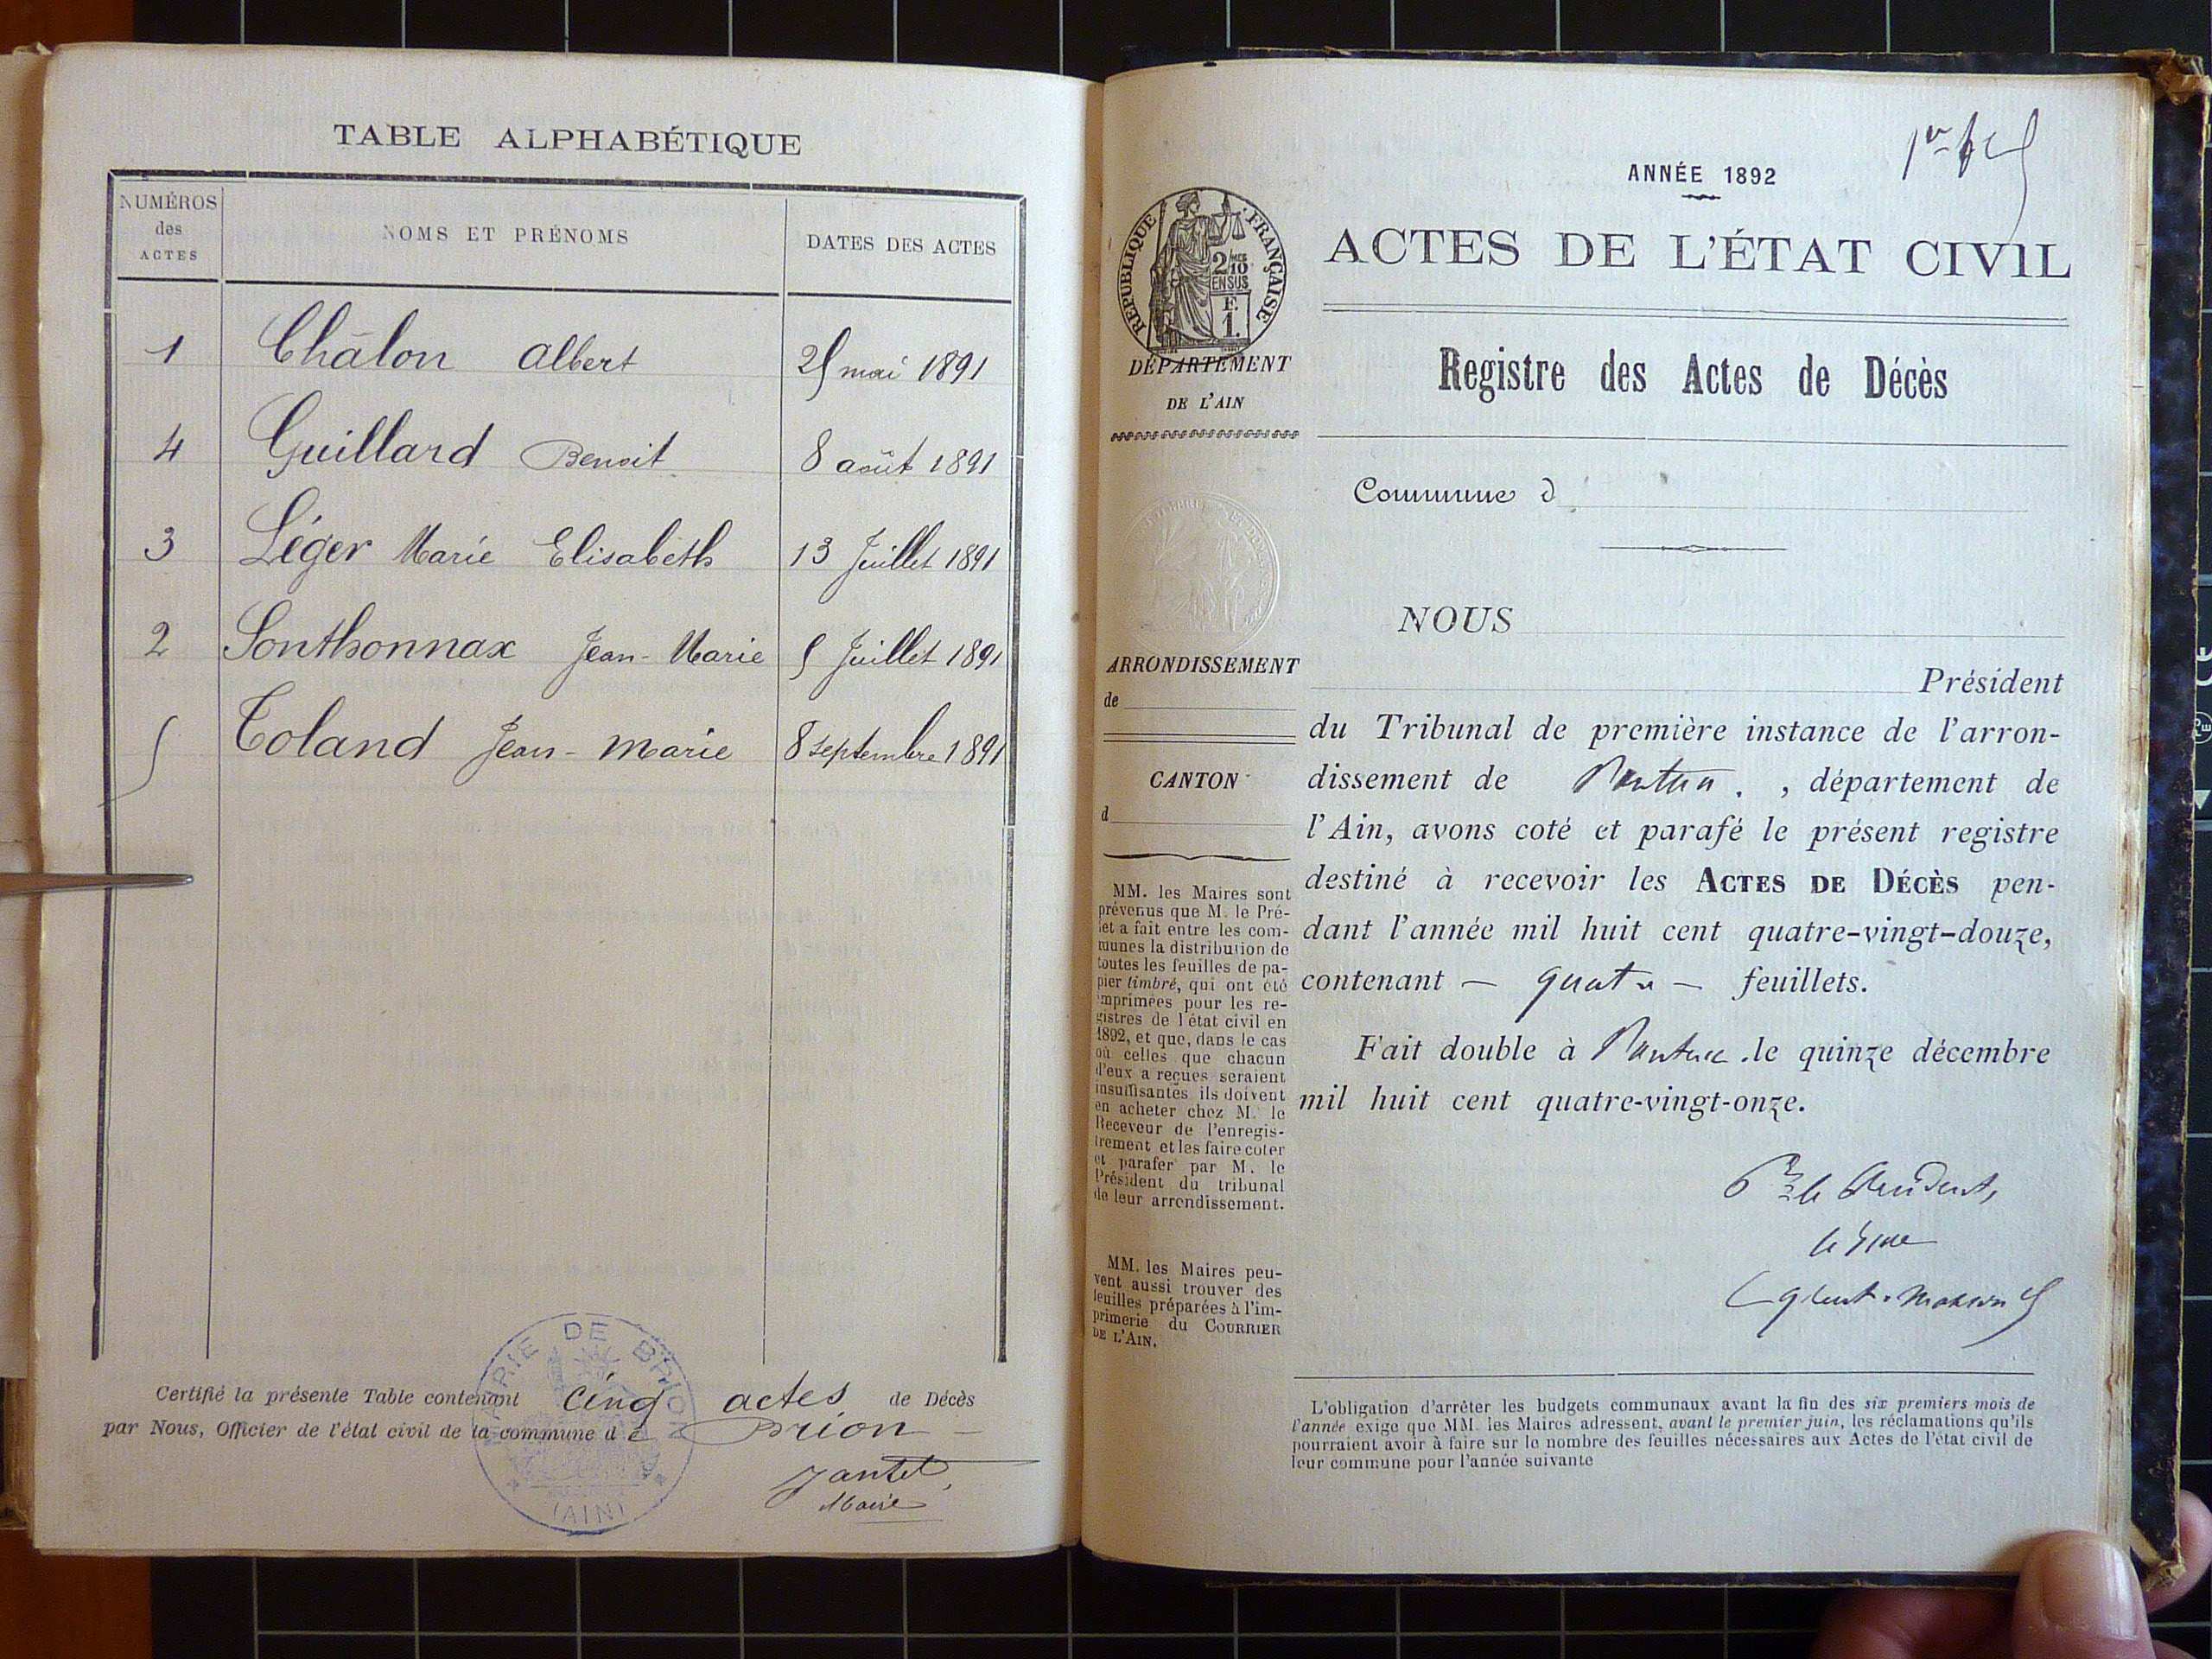 TABLE ALPHABÉTIQUE
NUMÉROS
des
ACTES
NOMS ET PRÉNOMS
DATES DES ACTES
1 Châlon Albert 25 mai 1891
4 Guillard Benoit 8 août 1891
3 Léger Marie Elisabeth 13 Juillet 1891
2 Sonthonnax Jean-Marie 5 Juillet 1891
5 Toland Jean-Marie 8 septembre 1891
Certifié la présente Table contenant cinq actes de Décès
par Nous, Officier de l'état civil de la commune de Brion
Jantet,
Maire
MAIRIE DE BRION
(AIN)
ANNÉE 1892
RÉPUBLIQUE FRANÇAISE
2/10
EN SUS
F.
1.
ACTES DE L'ÉTAT CIVIL
DÉPARTEMENT
DE L'AIN
Registre des Actes de Décès
Commune d
NOUS
Président
du Tribunal de première instance de l'arron-
dissement de Nantua, département de
l'Ain, avons coté et parafé le présent registre
destiné à recevoir les ACTES DE DÉCÈS pen-
dant l'année mil huit cent quatre-vingt-douze,
contenant — quatre — feuillets.
Fait double à Nantua le quinze décembre
mil huit cent quatre-vingt-onze.
le Président,
ARRONDISSEMENT
de
CANTON
d
MM. les Maires sont
prévenus que M. le Pré-
fet a fait entre les com-
munes la distribution de
toutes les feuilles de pa-
pier timbré, qui ont été
imprimées pour les re-
gistres de l'état civil en
1892, et que, dans le cas
où celles que chacun
d'eux a reçues seraient
insuffisantes ils doivent
en acheter chez M. le
Receveur de l'enregis-
trement et les faire coter
et parafer par M. le
Président du tribunal
de leur arrondissement.
MM. les Maires peu-
vent aussi trouver des
feuilles préparées à l'im-
primerie du COURRIER
DE L'AIN.
L'obligation d'arrêter les budgets communaux avant la fin des six premiers mois de
l'année exige que MM. les Maires adressent, avant le premier juin, les réclamations qu'ils
pourraient avoir à faire sur le nombre des feuilles nécessaires aux Actes de l'état civil de
leur commune pour l'année suivante